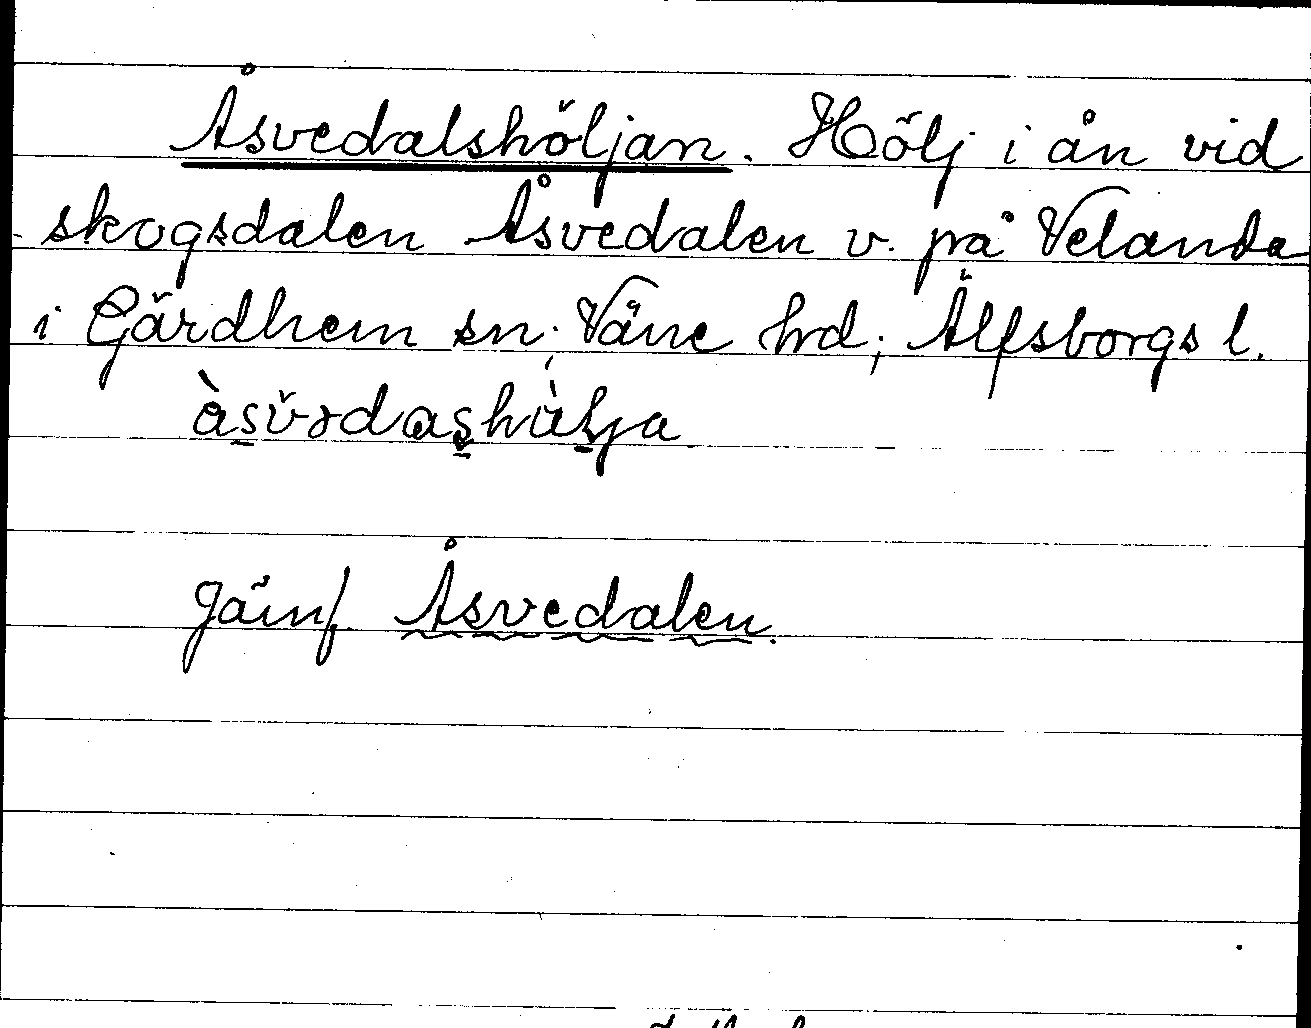 Åsvedalshöljan. Hölj i ån vid
skogsdalen Åsvedalen v. på Velanda
i Gärdhem sn; Väne hrd; Älfsborgs l.
Jämf Åsvedalen.